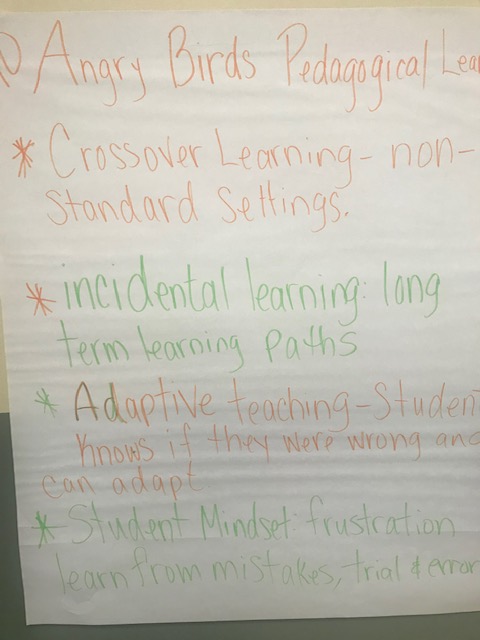 Angry Birds Pedagogical Lea
* Crossover Learning - non-
Standard Settings.
* incidental learning: long
term learning paths
* Adaptive teaching - Studen
knows if they were wrong and
can adapt
* Student Mindset: frustration
learn from mistakes, trial & error